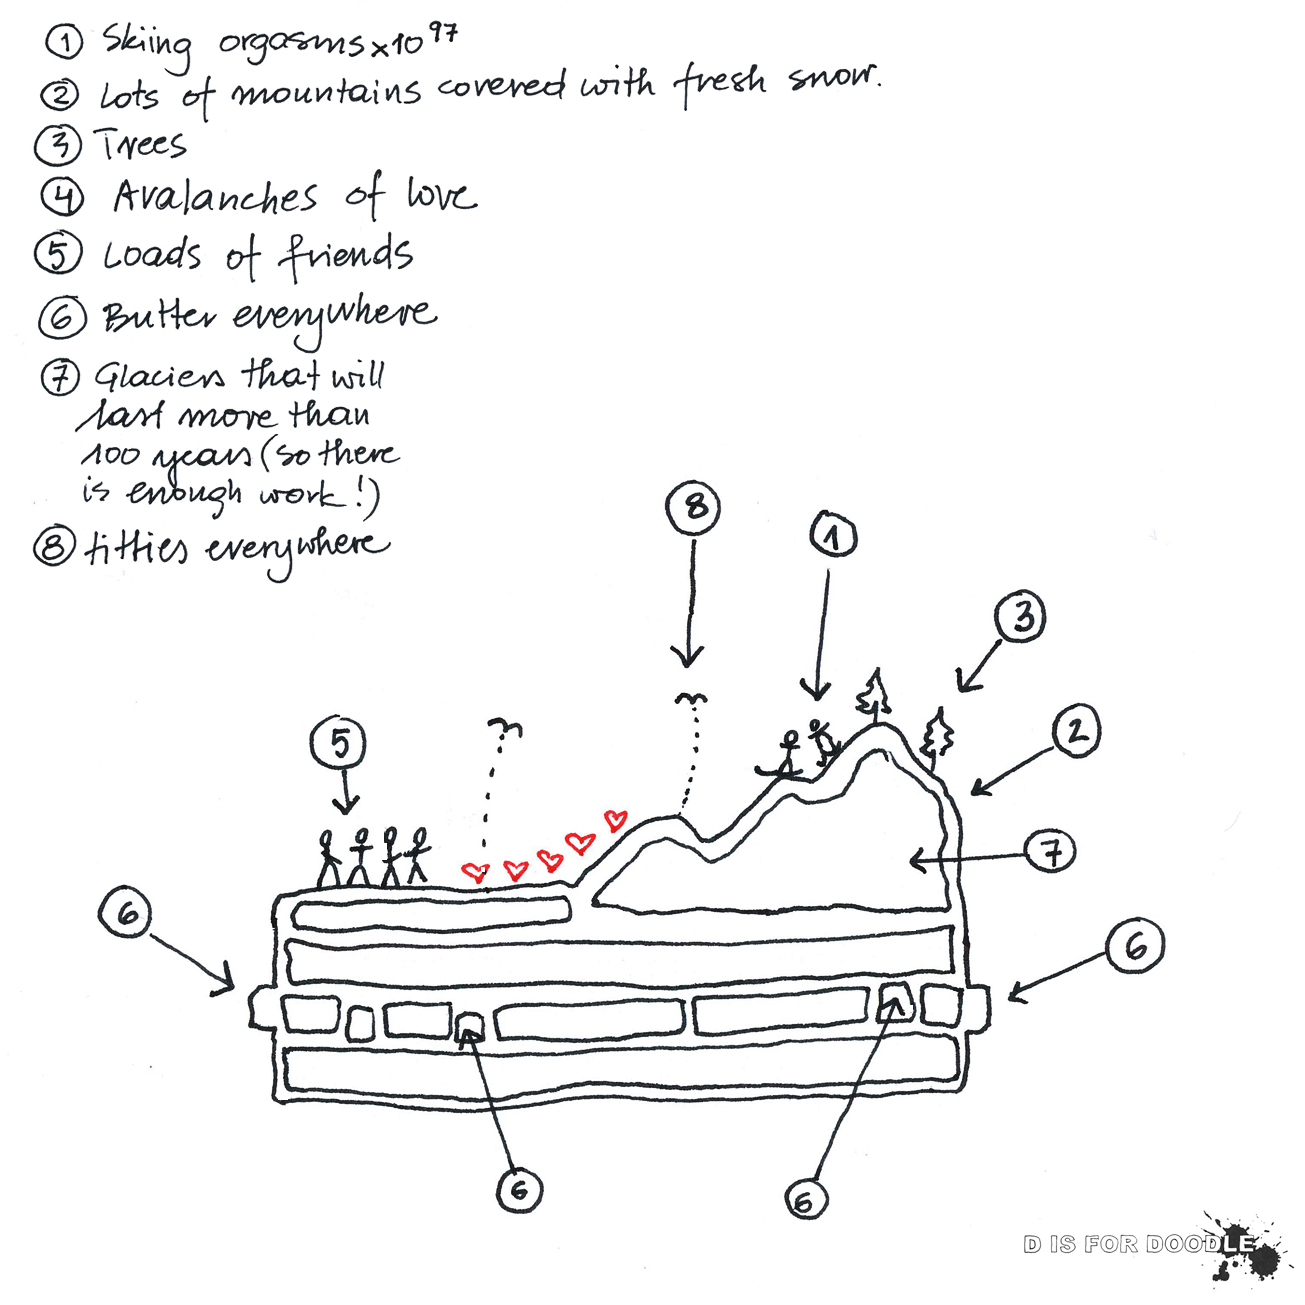 ① Skiing orgasms x10⁹⁷
② Lots of mountains covered with fresh snow.
③ Trees
④ Avalanches of love
⑤ Loads of friends
⑥ Butter everywhere
⑦ Glaciers that will
last more than
100 years (so there
is enough work!)
⑧ titties everywhere
8
1
3
2
5
7
6
6
6
6
D IS FOR DOODLE